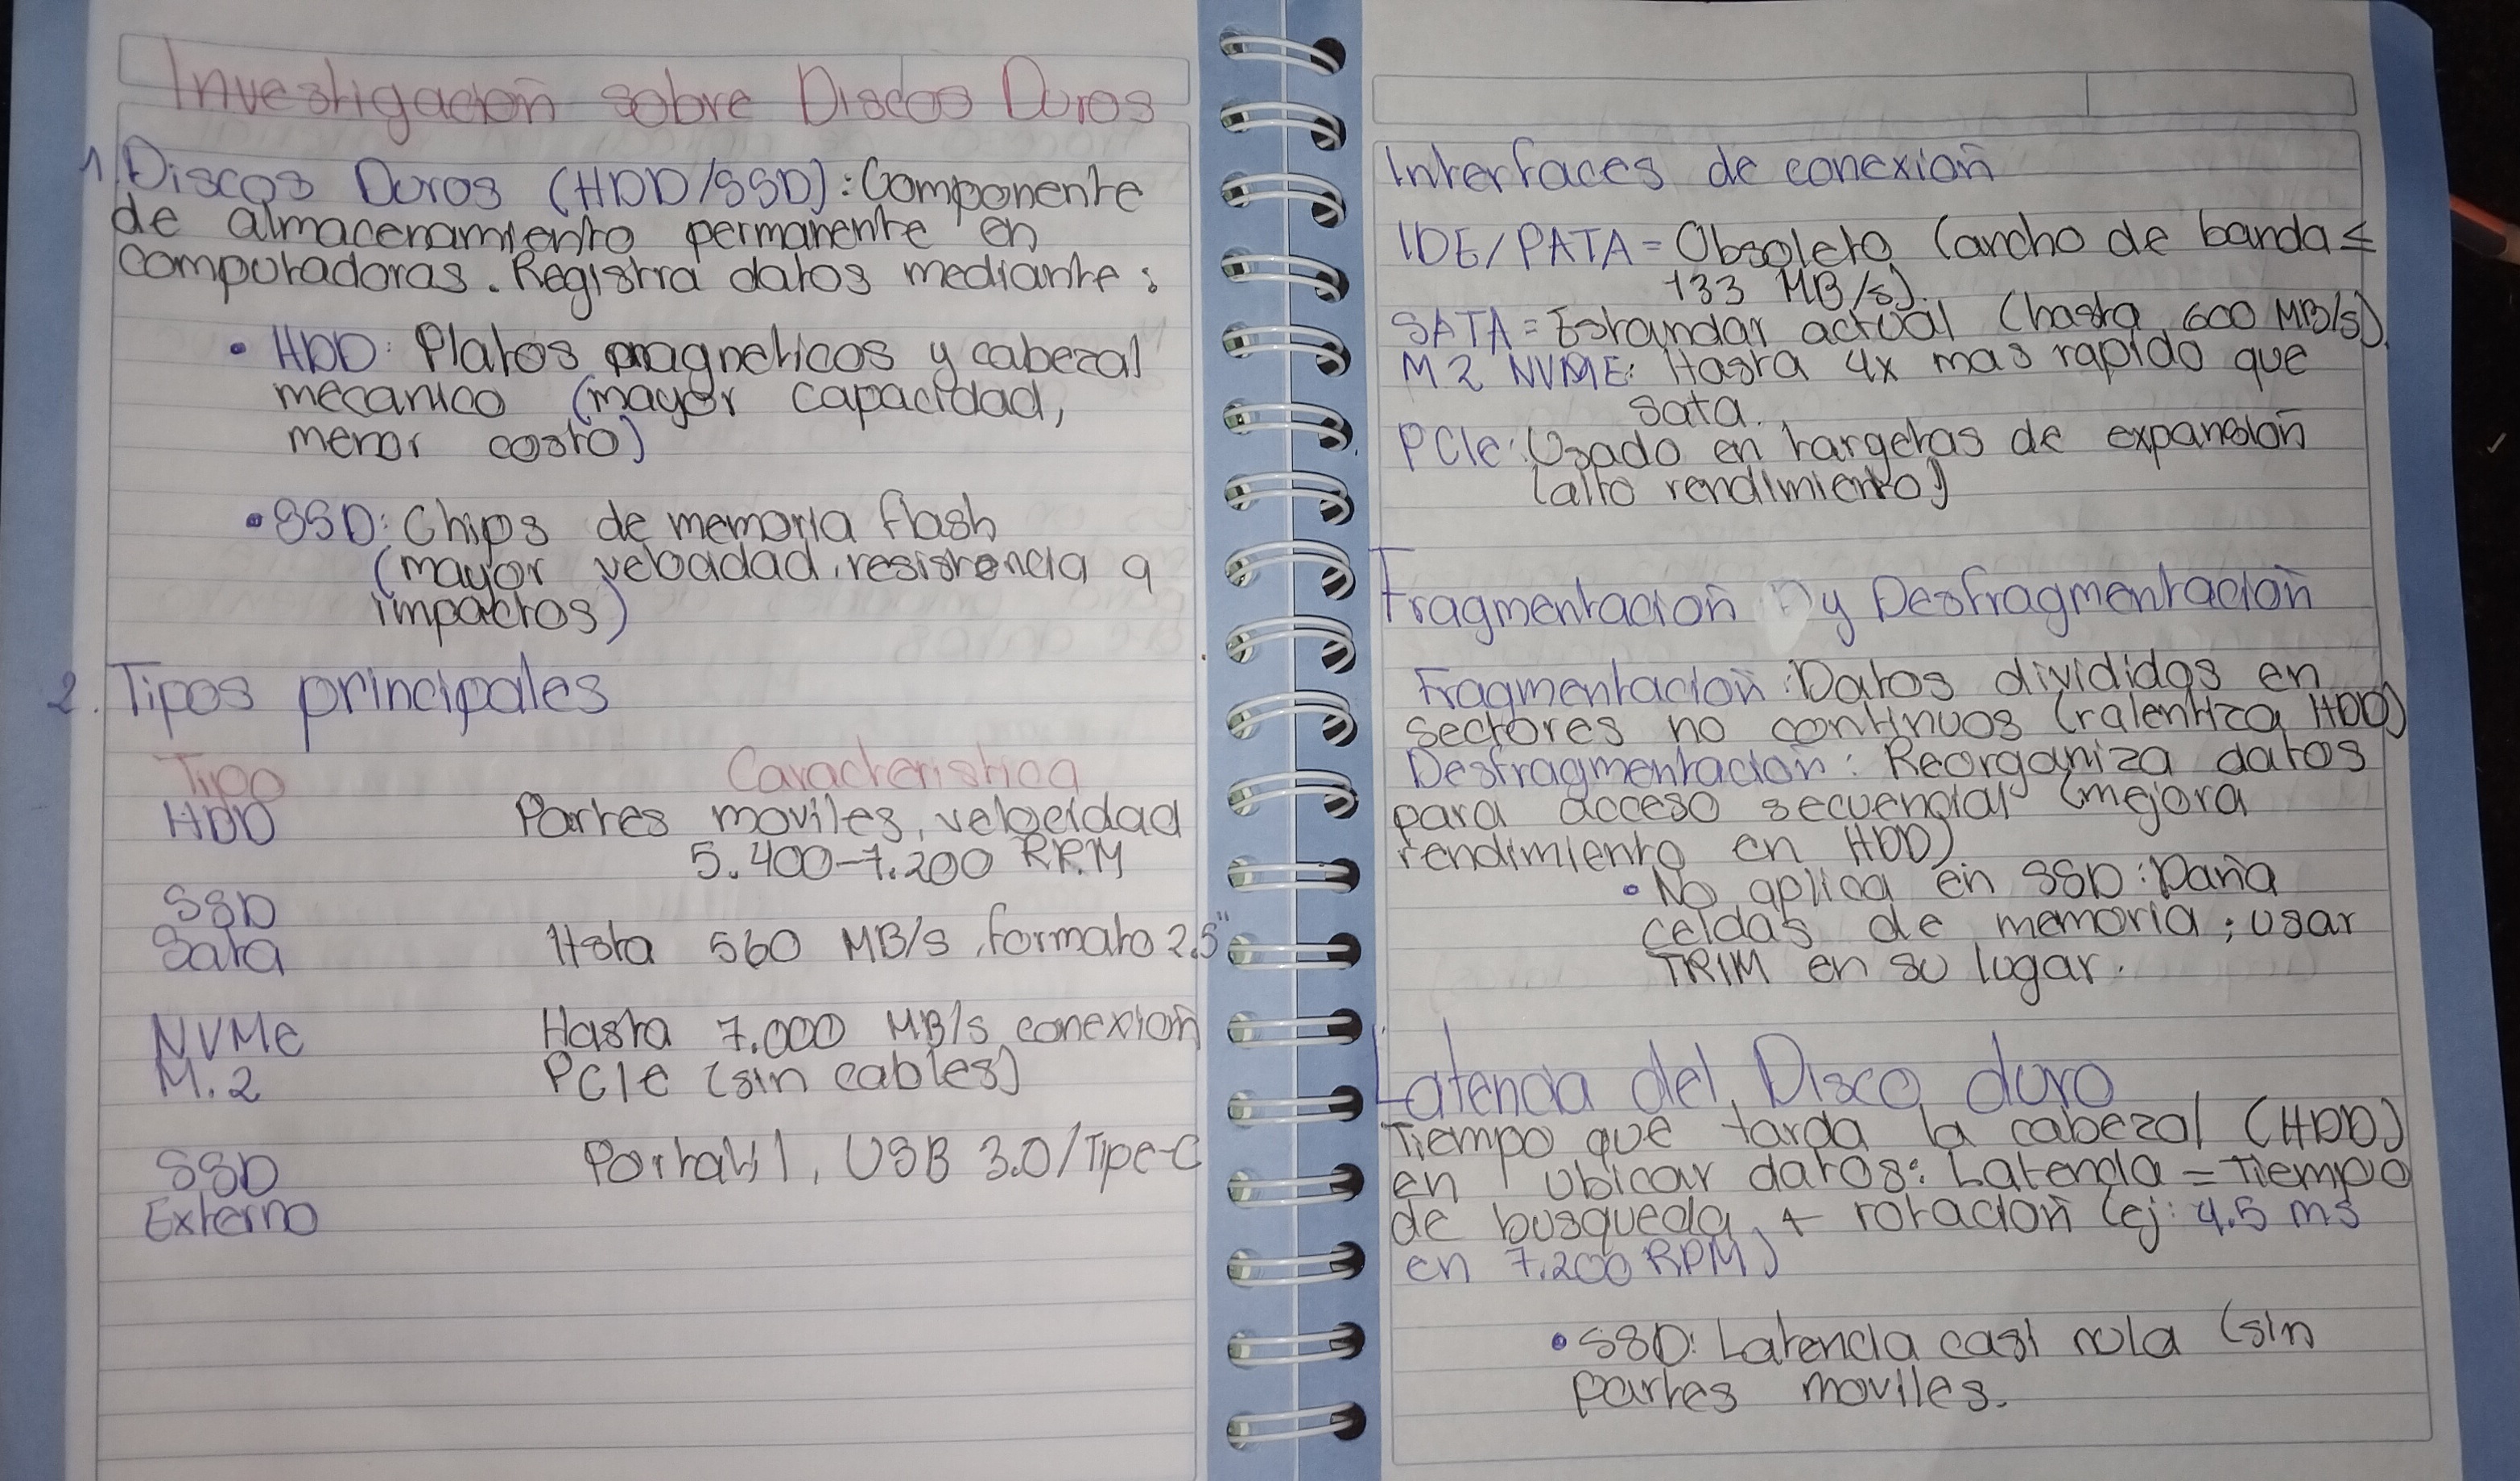 Investigación sobre Discos Duros
1. Discos Duros (HDD/SSD): Componente
de almacenamiento permanente en
computadoras. Registra datos mediante:
• HDD: Platos magneticos y cabezal
mecanico (mayor capacidad,
menor costo)
• SSD: Chips de memoria flash
(mayor velocidad, resistencia a
impactos)
2. Tipos principales
Tipo Caracteristica
HDD Partes moviles, velocidad
5.400-7.200 RPM
SSD
Sata Hsta 560 MB/s, formato 2.5"
NVMe Hasta 7.000 MB/s conexión
M.2 PCIe (sin cables)
SSD Portatil, USB 3.0/Tipe-C
Externo
Interfaces de conexión
IDE/PATA = Obsoleto (ancho de banda ≤
133 MB/s).
SATA = Estandar actual (hasta 600 MB/s).
M2 NVME: Hasta 4x mas rapido que
sata.
PCIe: Usado en targetas de expansión
(alto rendimiento)
Fragmentación y Desfragmentación
Fragmentación: Datos divididos en
sectores no continuos (ralentiza HDD)
Desfragmentación: Reorganiza datos
para acceso secuencial (mejora
rendimiento en HDD)
• No aplica en SSD: Daña
celdas de memoria; usar
TRIM en su lugar.
Latencia del Disco duro
Tiempo que tarda la cabezal (HDD)
en ubicar datos: Latencia = Tiempo
de busqueda + rotación (ej: 4.5 ms
en 7.200 RPM)
• SSD: Latencia casi nula (sin
partes moviles.